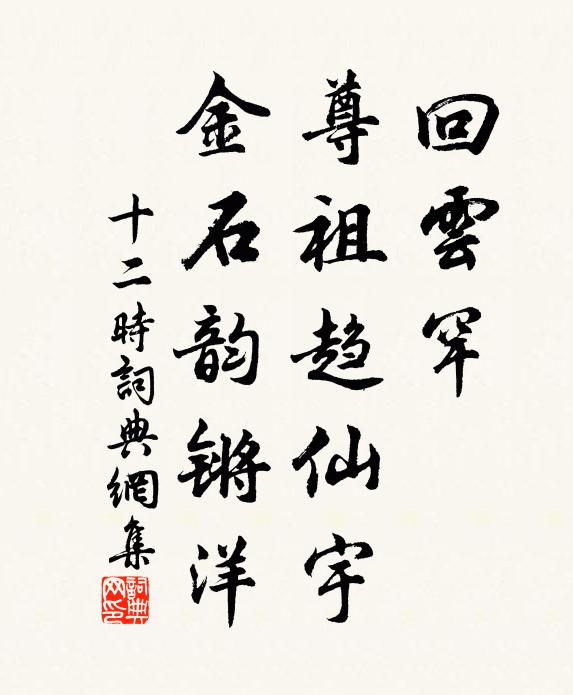 回雲罕
尊祖趋仙宇
金石韵锵洋
十二時詞典網集
詞典
网印